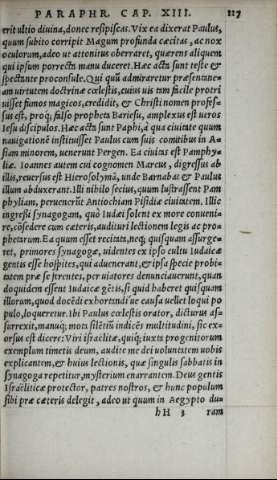 PARAPHR. CAP. XIII. 117
erit ultio diuina, donec resipiscas. Vix ea dixerat Paulus,
quum subito corripit Magum profunda cæcitas, ac nox
oculorum, adeo ut attonitus oberraret, quærens aliquem
qui ipsum porrecta manu duceret. Hæc acta sunt teste &
spectante proconsule. Qui quũ admiraretur præsentane-
am uirtutem doctrinæ cœlestis, cuius uis tam facile protri
uisset fumos magicos, credidit, & Christi nomen profes-
sus est, proq; falso propheta Bariesu, amplexus est ueros
Iesu discipulos. Hæc acta sunt Paphi, à qua ciuitate quum
nauigationē instituisset Paulus cum suis comitibus in A-
siam minorem, uenerunt Pergen. Ea ciuitas est Pamphy-
liæ. Ioannes autem cui cognomen Marcus, digressus ab
illis, reuersus est Hierosolymā, unde Barnabas & Paulus
illum abduxerant. Illi nihilo secius, quum lustrassent Pam
phyliam, peruenerũt Antiochiam Pisidiæ ciuitatem. Illic
ingressi synagogam, quò Iudæi solent ex more conuenia-
re, cõsedere cum cæteris, audituri lectionem legis ac pro-
phetarum. Ea quum esset recitata, neq; quisquam assurge-
ret, primores synagogæ, uidentes ex ipso cultu Iudaicæ
gentis esse hospites, qui aduenerant, & ipsa specie probi-
tatem præ se ferentes, per uiatores denunciauerunt, quan
doquidem essent Iudaicæ gētis, si quid haberet quisquam
illorum, quod docēdi exhortandi'ue causa uellet loqui po
pulo, loqueretur. Ibi Paulus cœlestis orator, dicturus as-
surrexit, manuq; mota silētiũ indicēs multitudini, sic ex-
orsus est dicere: Viri israelitæ, quiq; iuxta progenitorum
exemplum timetis deum, audite me dei uoluntatem uobis
explicantem, & huius lectionis, quæ singulis sabbatis in
synagoga repetitur, mysterium enarrantem. Deus gentis
Israeliticæ protector, patres nostros, & hunc populum
sibi præ cæteris delegit, adeo ut quum in Aegypto du-
hH 3 ram